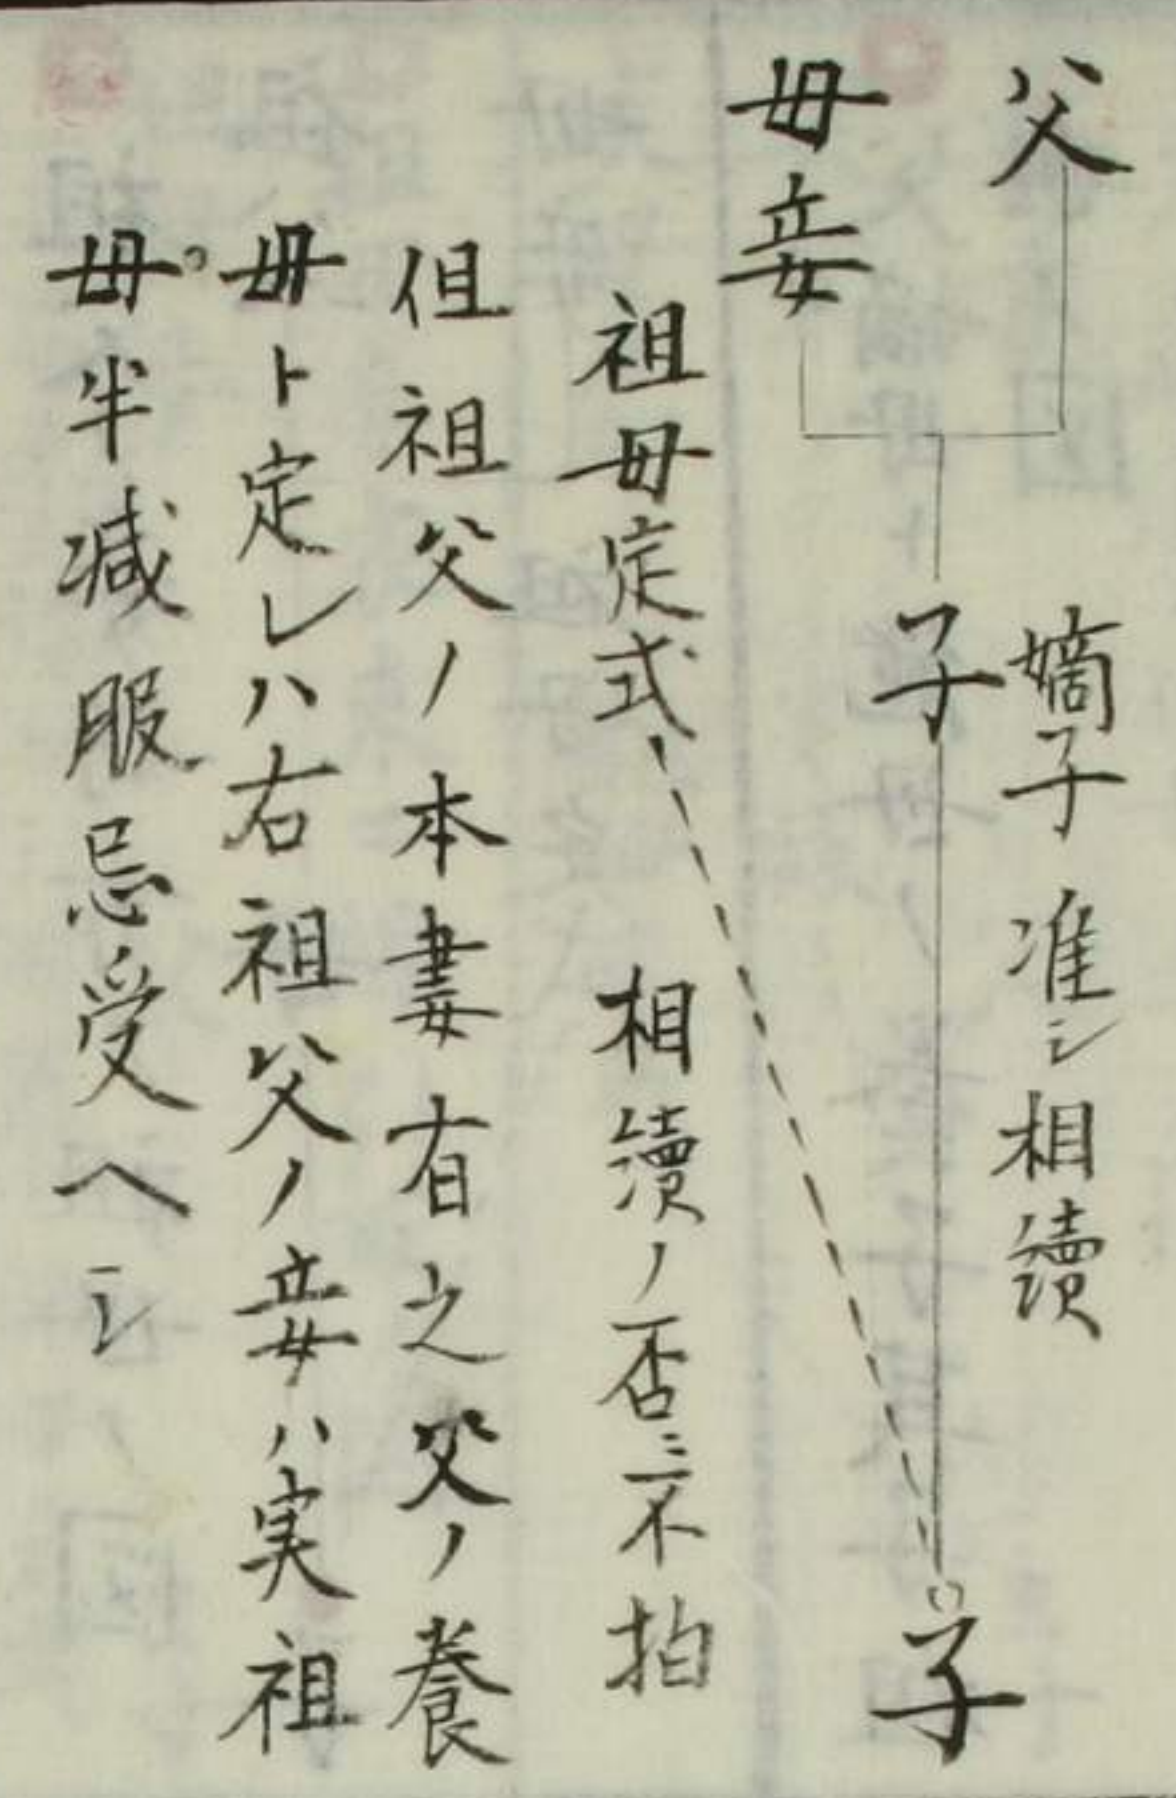 父
母妾
嫡子准シ相續
子
子
祖母定式 相續ノ否ニ不拍
但祖父ノ本妻有之父ノ養
母ト定レハ右祖父ノ妾ハ実祖
母半減服忌受ヘシ